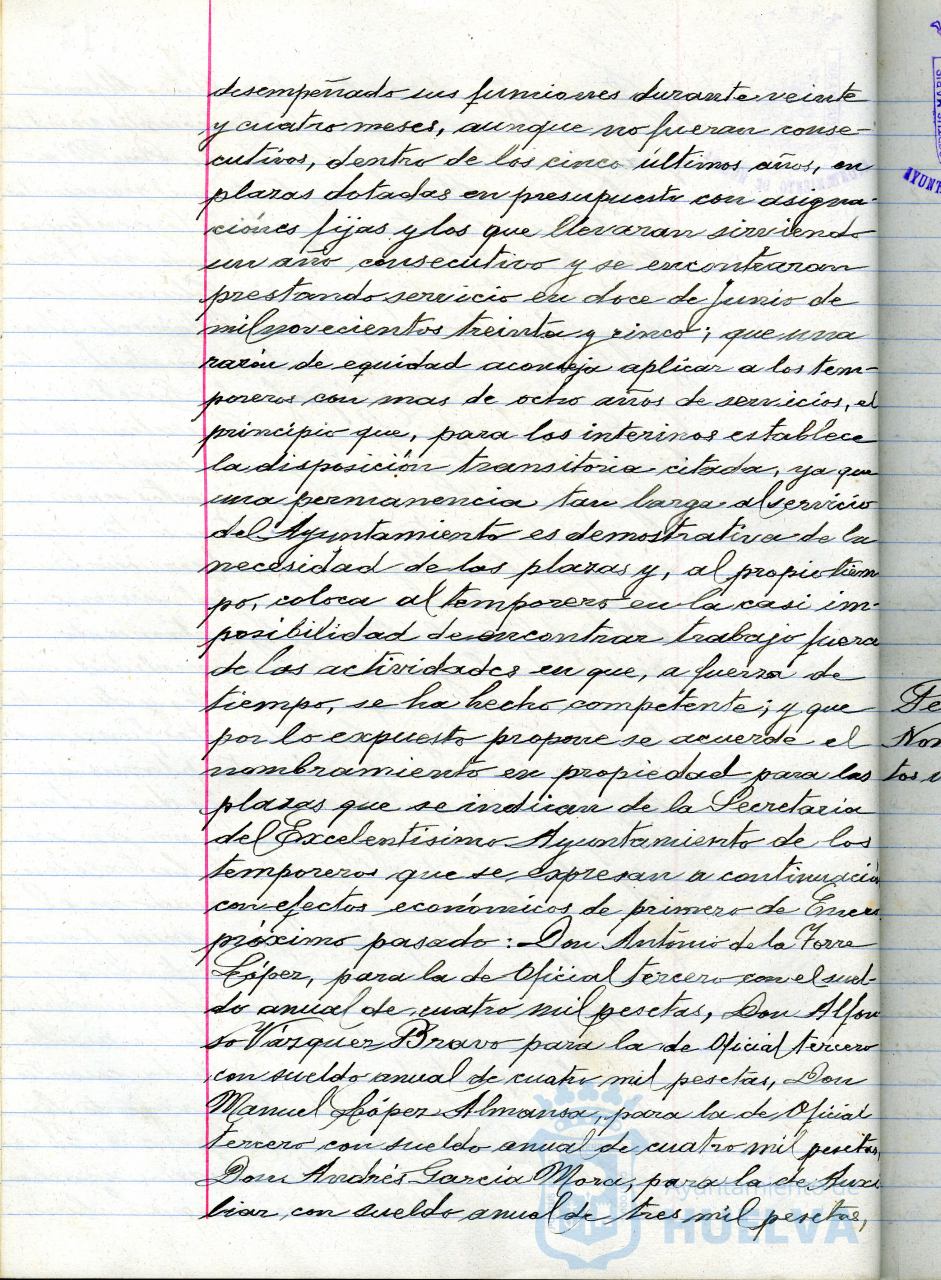 desempeñado sus funciones durante veinte
y cuatro meses, aunque no fueran conse-
cutivos, dentro de los cinco últimos años, en
plazas dotadas en presupuesto con asigna-
ciónes fijas y los que llevaran sirviendo
un año consecutivo y se encontraran
prestando servicio en doce de Junio de
mil novecientos treinta y cinco; que una
razón de equidad aconseja aplicar a los tem-
poreros con mas de ocho años de servicios, el
principio que, para los interinos establece
la disposición transitoria citada, ya que
una permanencia tan larga al servicio
del Ayuntamiento es demostrativa de la
necesidad de las plazas y, al propio tiem
po, coloca al temporero en la casi im-
posibilidad de encontrar trabajo fuera
de las actividades en que, a fuerza de
tiempo, se ha hecho competente; y que
por lo expuesto propone se acuerde el
nombramiento en propiedad para las
plazas que se indican de la Secretaria
del Excelentisimo Ayuntamiento de los
temporeros que se expresan a continuación
con efectos económicos de primero de Enero
próximo pasado: Don Antonio de la Torre
López, para la de Oficial tercero con el suel-
do anual de cuatro mil pesetas, Don Alfon
so Vázquez Bravo para la de Oficial tercero
con sueldo anual de cuatro mil pesetas, Don
Manuel López Almansa, para la de Oficial
tercero con sueldo anual de cuatro mil pesetas,
Don Andrés García Mora, para la de Auxi
liar con sueldo anual de tres mil pesetas,
Ayuntamiento de
HUELVA